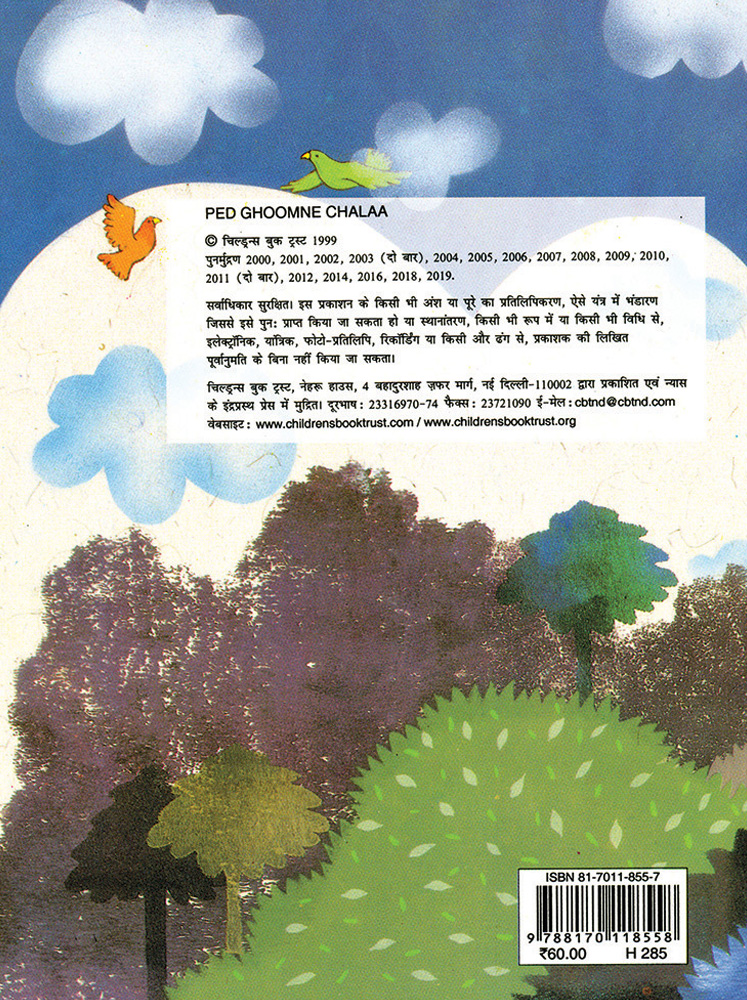 PED GHOOMNE CHALAA
© चिल्ड्रन्स बुक ट्रस्ट 1999
पुनर्मुद्रण 2000, 2001, 2002, 2003 (दो बार), 2004, 2005, 2006, 2007, 2008, 2009, 2010,
2011 (दो बार), 2012, 2014, 2016, 2018, 2019.
सर्वाधिकार सुरक्षित। इस प्रकाशन के किसी भी अंश या पूरे का प्रतिलिपिकरण, ऐसे यंत्र में भंडारण
जिससे इसे पुन: प्राप्त किया जा सकता हो या स्थानांतरण, किसी भी रूप में या किसी भी विधि से,
इलेक्ट्रॉनिक, यांत्रिक, फोटो-प्रतिलिपि, रिकॉर्डिंग या किसी और ढंग से, प्रकाशक की लिखित
पूर्वानुमति के बिना नहीं किया जा सकता।
चिल्ड्रन्स बुक ट्रस्ट, नेहरू हाउस, 4 बहादुरशाह ज़फर मार्ग, नई दिल्ली-110002 द्वारा प्रकाशित एवं न्यास
के इंद्रप्रस्थ प्रेस में मुद्रित। दूरभाष: 23316970-74 फैक्स: 23721090 ई-मेल:cbtnd@cbtnd.com
वेबसाइट: www.childrensbooktrust.com / www.childrensbooktrust.org
ISBN 81-7011-855-7
9 788170 118558
₹60.00 H 285